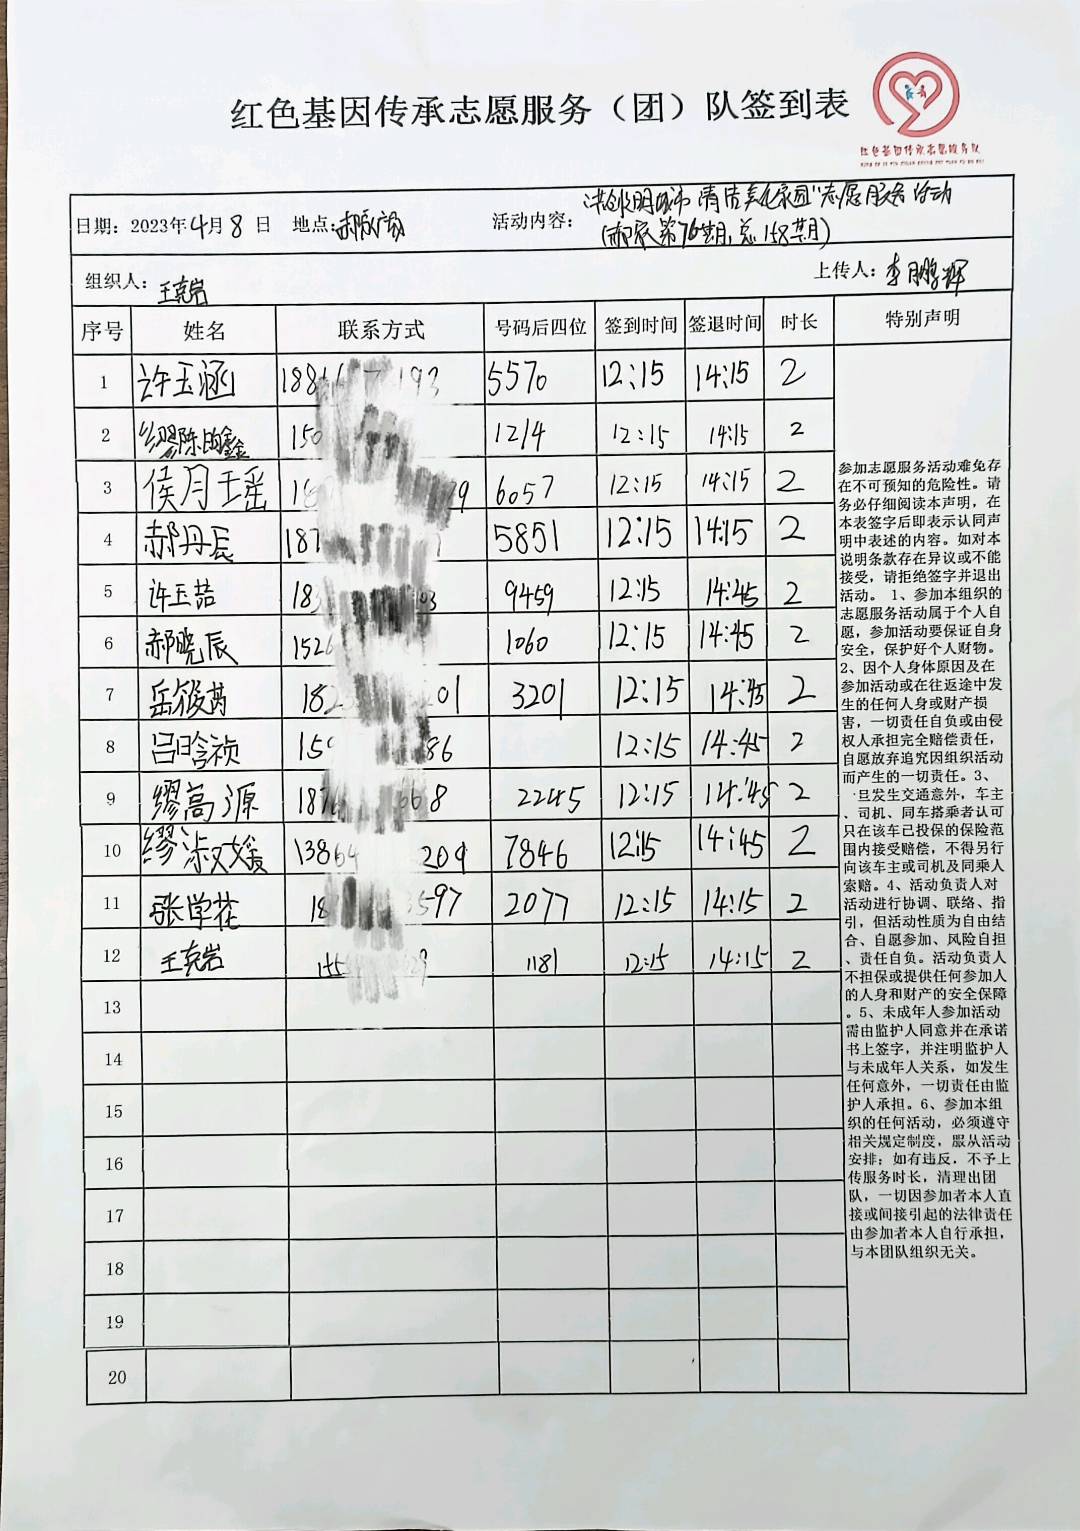 红色基因传承志愿服务（团）队签到表
红色基因传承志愿服务队
日期：2023年4月8日 地点：郝家广场 活动内容："共创文明城市 清洁美化家园"志愿服务活动
（郝家第76期，总158期）
组织人：王克岩 上传人：李鹏辉
序号 姓名 联系方式 号码后四位 签到时间 签退时间 时长 特别声明
1 许玉涵 5570 12:15 14:15 2
2 1214 12:15 14:15 2
3 侯月瑶 6057 12:15 14:15 2
4 郝丹辰 5851 12:15 14:15 2
5 许玉喆 9459 12:15 14:45 2
6 郝晓辰 1526 1060 12:15 14:45 2
7 岳筱芮 3201 12:15 14:45 2
8 吕晗祯 12:15 14:45 2
9 缪高源 2245 12:15 14:45 2
10 缪淑媛 13864 209 7846 12:15 14:45 2
11 张学花 2077 12:15 14:15 2
12 王克岩 1181 12:15 14:15 2
13
14
15
16
17
18
19
20
参加志愿服务活动难免存
在不可预知的危险性。请
务必仔细阅读本声明，在
本表签字后即表示认同声
明中表述的内容。如对本
说明条款存在异议或不能
接受，请拒绝签字并退出
活动。 1、参加本组织的
志愿服务活动属于个人自
愿，参加活动要保证自身
安全，保护好个人财物。
2、因个人身体原因及在
参加活动或在往返途中发
生的任何人身或财产损
害，一切责任自负或由侵
权人承担完全赔偿责任，
自愿放弃追究因组织活动
而产生的一切责任。3、
一旦发生交通意外，车主
、司机、同车搭乘者认可
只在该车已投保的保险范
围内接受赔偿，不得另行
向该车主或司机及同乘人
索赔。4、活动负责人对
活动进行协调、联络、指
引，但活动性质为自由结
合、自愿参加、风险自担
、责任自负。活动负责人
不担保或提供任何参加人
的人身和财产的安全保障
。5、未成年人参加活动
需由监护人同意并在承诺
书上签字，并注明监护人
与未成年人关系，如发生
任何意外，一切责任由监
护人承担。6、参加本组
织的任何活动，必须遵守
相关规定制度，服从活动
安排；如有违反，不予上
传服务时长，清理出团
队，一切因参加者本人直
接或间接引起的法律责任
由参加者本人自行承担，
与本团队组织无关。